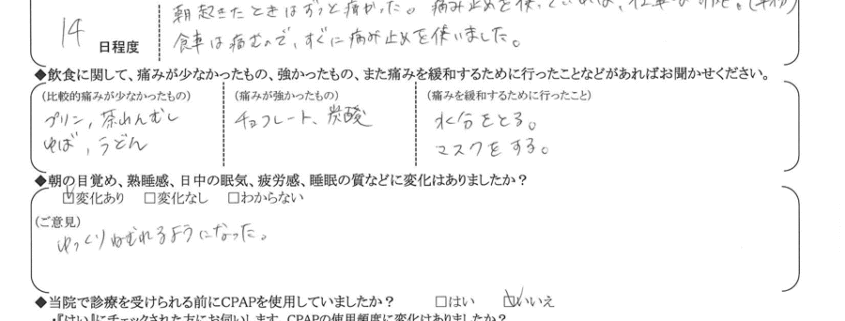 朝起きたときはずっと痛かった。痛み止めを使っていれば、仕事は可能。
14 日程度
食事は痛むので、すぐに痛み止めを使いました。
◆飲食に関して、痛みが少なかったもの、強かったもの、また痛みを緩和するために行ったことなどがあればお聞かせください。
(比較的痛みが少なかったもの) (痛みが強かったもの) (痛みを緩和するために行ったこと)
プリン, 茶わんむし チョコレート、炭酸 水分をとる。
ゆば, うどん マスクをする。
◆朝の目覚め、熟睡感、日中の眠気、疲労感、睡眠の質などに変化はありましたか？
☑変化あり □変化なし □わからない
(ご意見)
ゆっくりねむれるようになった。
◆当院で診療を受けられる前にCPAPを使用していましたか？ □はい ☑いいえ
・『はい』にチェックされた方にお伺いします。CPAPの使用頻度に変化はありましたか？